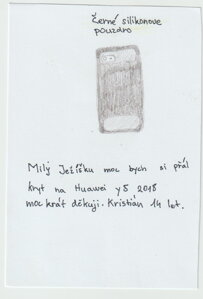 Černé silikonove
pouzdro
Milý Ježíšku moc bych si přál
kryt na Huawei y5 2018
mockrát děkuji. Kristián 14 let.